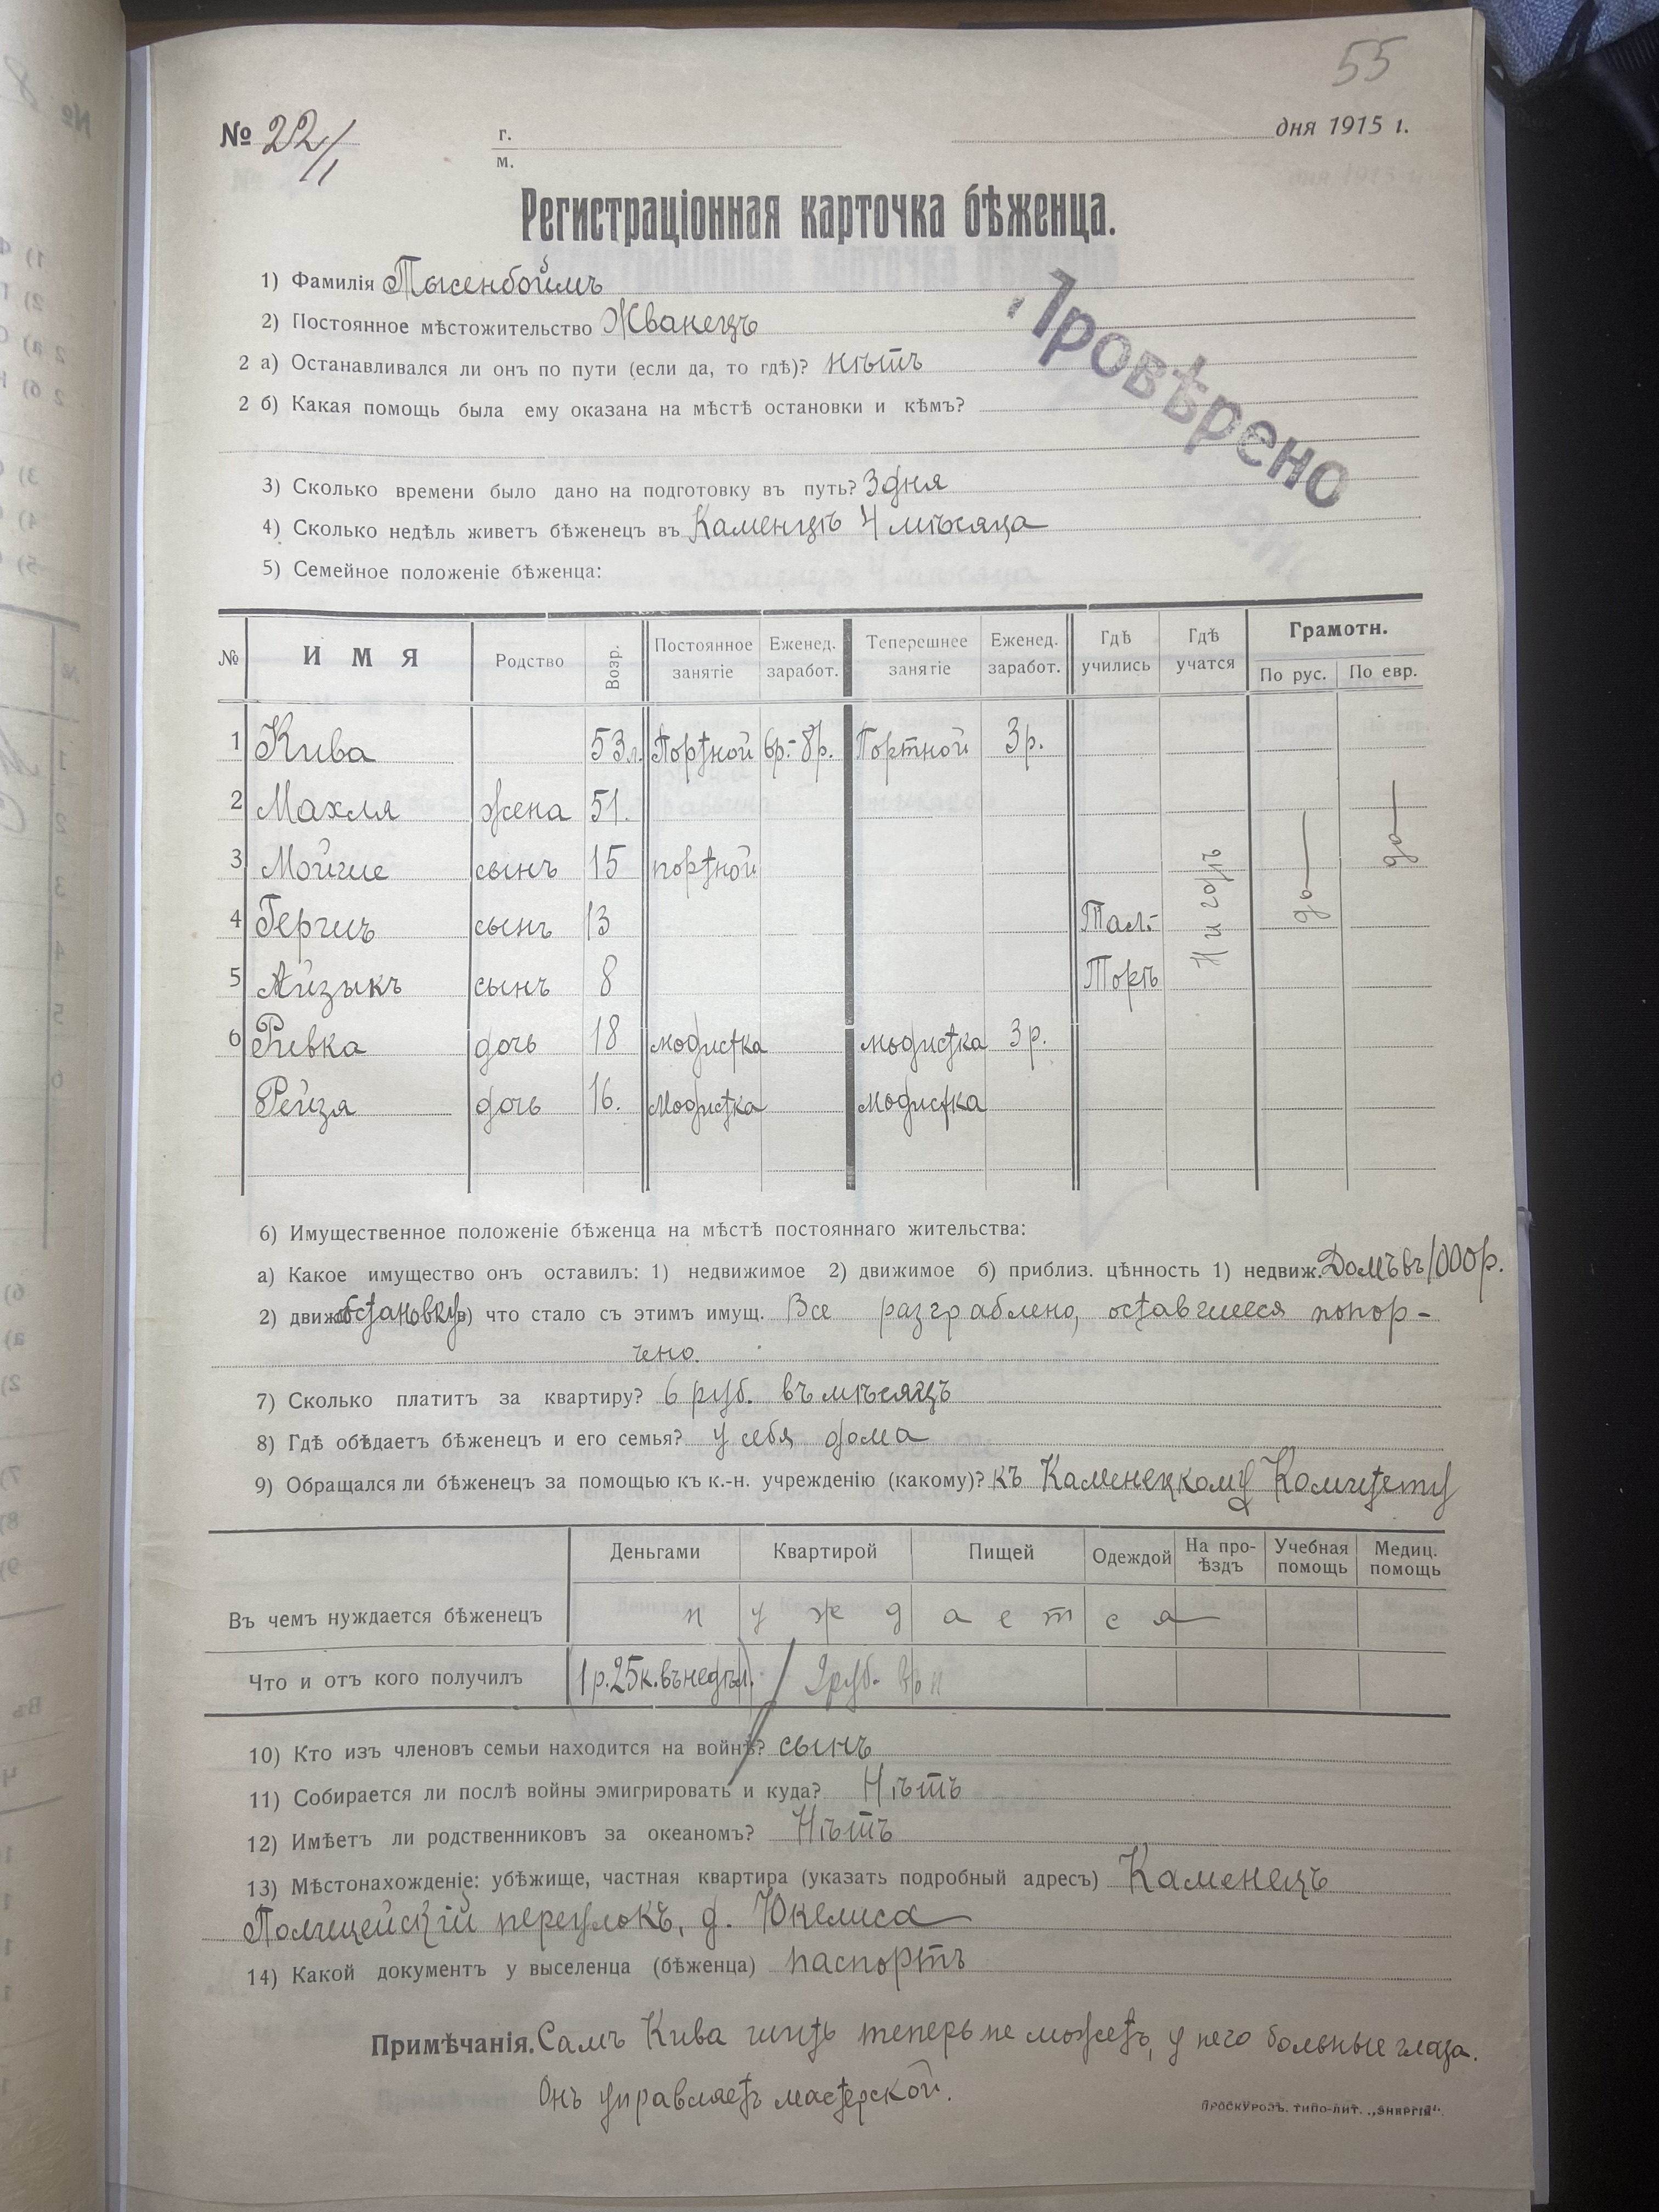 55
№ 22/1 г. м. дня 1915 г.
Регистраціонная карточка бѣженца.
1) Фамилія Тысенбоймъ
2) Постоянное мѣстожительство Жванецъ
2 а) Останавливался ли онъ по пути (если да, то гдѣ)? нѣтъ
2 б) Какая помощь была ему оказана на мѣстѣ остановки и кѣмъ?
Провѣрено
3) Сколько времени было дано на подготовку въ путь? 3 дня
4) Сколько недѣль живетъ бѣженецъ въ Каменцѣ 4 мѣсяца
5) Семейное положеніе бѣженца:
№ ИМЯ Родство Возр. Постоянное занятіе Еженед. заработ. Теперешнее занятіе Еженед. заработ. Гдѣ учились Гдѣ учатся Грамотн. По рус. По евр.
1 Кива 53 л. Портной 6р.-8р. Портной 3 р.
2 Махля жена 51.
3 Мойше сынъ 15 портной
4 Гершъ сынъ 13 Тал.-
5 Айзыкъ сынъ 8 Торъ
6 Ривка дочь 18 модистка модистка 3 р.
Рейзя дочь 16. Модистка модистка
да да
6) Имущественное положеніе бѣженца на мѣстѣ постояннаго жительства:
а) Какое имущество онъ оставилъ: 1) недвижимое 2) движимое б) приблиз. цѣнность 1) недвиж. Домъ въ 1000 р.
2) движ. обстановку в) что стало съ этимъ имущ. Все разграблено, оставшееся попор-
чено.
7) Сколько платитъ за квартиру? 6 руб. въ мѣсяцъ
8) Гдѣ обѣдаетъ бѣженецъ и его семья? у себя дома
9) Обращался ли бѣженецъ за помощью къ к.-н. учрежденію (какому)? къ Каменецкому Комитету
Деньгами Квартирой Пищей Одеждой На про-ѣздъ Учебная помощь Медиц. помощь
Въ чемъ нуждается бѣженецъ нуждается
Что и отъ кого получилъ 1 р. 25 к. въ недѣл. 2 руб.
10) Кто изъ членовъ семьи находится на войнѣ? сынъ
11) Собирается ли послѣ войны эмигрировать и куда? Нѣтъ
12) Имѣетъ ли родственниковъ за океаномъ? Нѣтъ
13) Мѣстонахожденіе: убѣжище, частная квартира (указать подробный адресъ) Каменецъ
Полицейскій переулокъ, д. Юкелиса
14) Какой документъ у выселенца (бѣженца) паспортъ
Примѣчанія. Самъ Кива шить теперь не можетъ, у него больные глаза.
Онъ управляетъ мастерской.
ПРОСКУРОВЪ. ТИПО-ЛИТ. „ЭНЕРГІЯ".